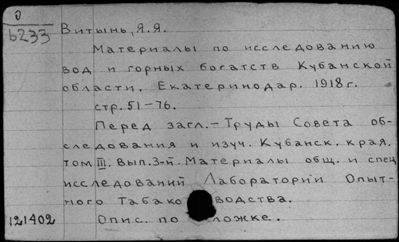 0
6233
Витынь, Я.Я.
Материалы по исследованию
вод и горных богатств Кубанской
области. Екатеринодар. 1918 г.
стр. 51-76.
Перед загл. - Труды Совета об-
следования и изуч. Кубанск. края.
том III. Вып. 3-й. Материалы общ. и спец
исследований Лаборатории Опыт-
ного Табако водства.
121402 Опис. по ложке.